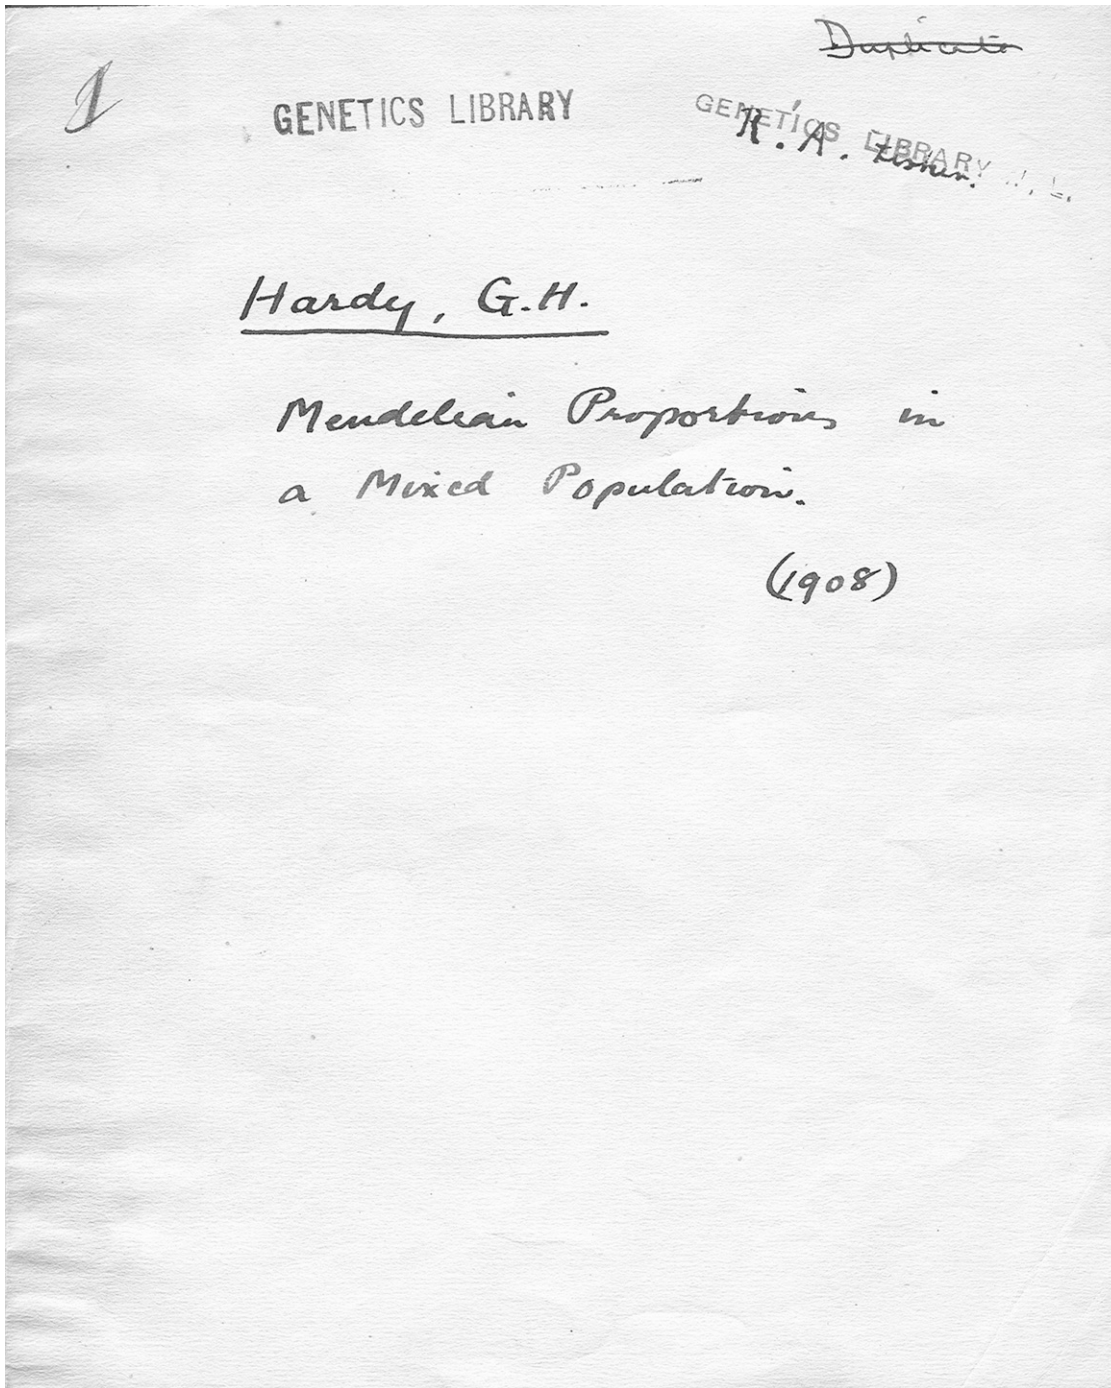 Duplicate
1
GENETICS LIBRARY
GENETICS LIBRARY
R. A. Fisher.
Hardy, G.H.
Mendelian Proportions in
a Mixed Population.
(1908)